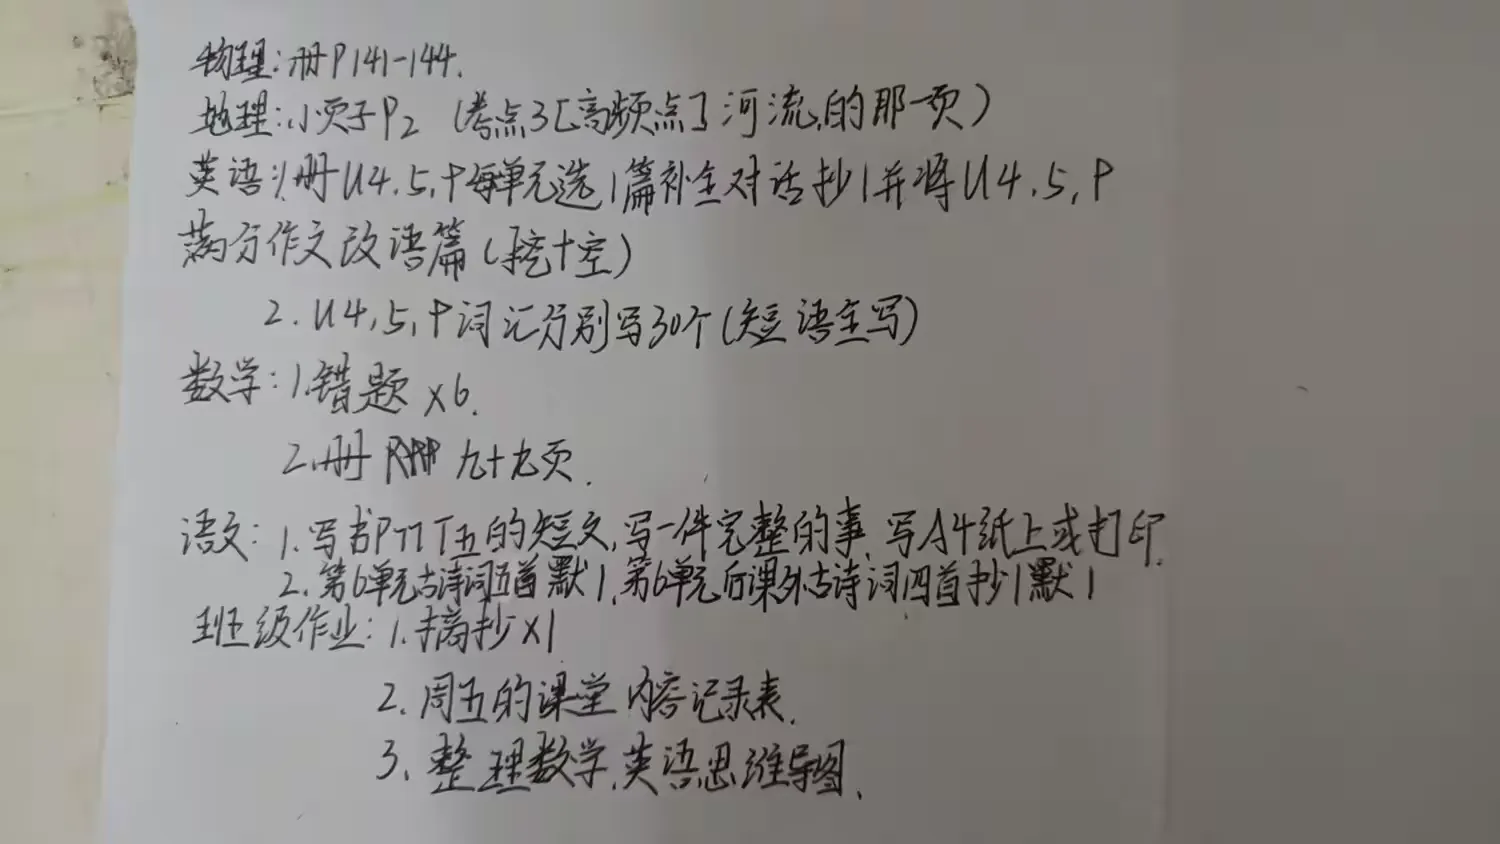 物理:册P141-144.
地理:小页子P2 (考点3[高频点]河流的那一页)
英语:1.册U4.5,P每单元选1篇补全对话抄1并将U4.5,P
满分作文改语篇(挖十空)
2.U4,5,P词汇分别写30个(短语全写)
数学:1.错题x6.
2.册 九十九页.
语文:1.写书P77 T五的短文,写一件完整的事.写A4纸上或打印.
2.第6单元古诗词五首默1,第6单元后课外古诗词四首抄1默1
班级作业:1.摘抄x1
2.周五的课堂内容记录表.
3、整理数学.英语思维导图.